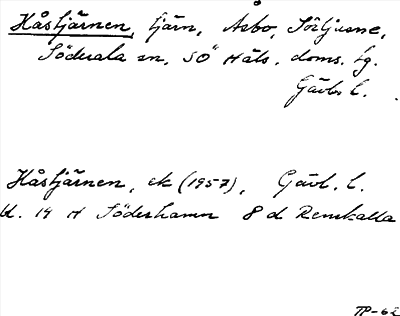 Håstjärnen, tjärn, Åsbo, Sörljusne,
Söderala sn, SÖ Häls. doms. tg.
Gävl. l.
Håstjärnen, ek (1957), Gävl. l.
bl. 14 H Söderhamn 8 d Renskalla
TP-62